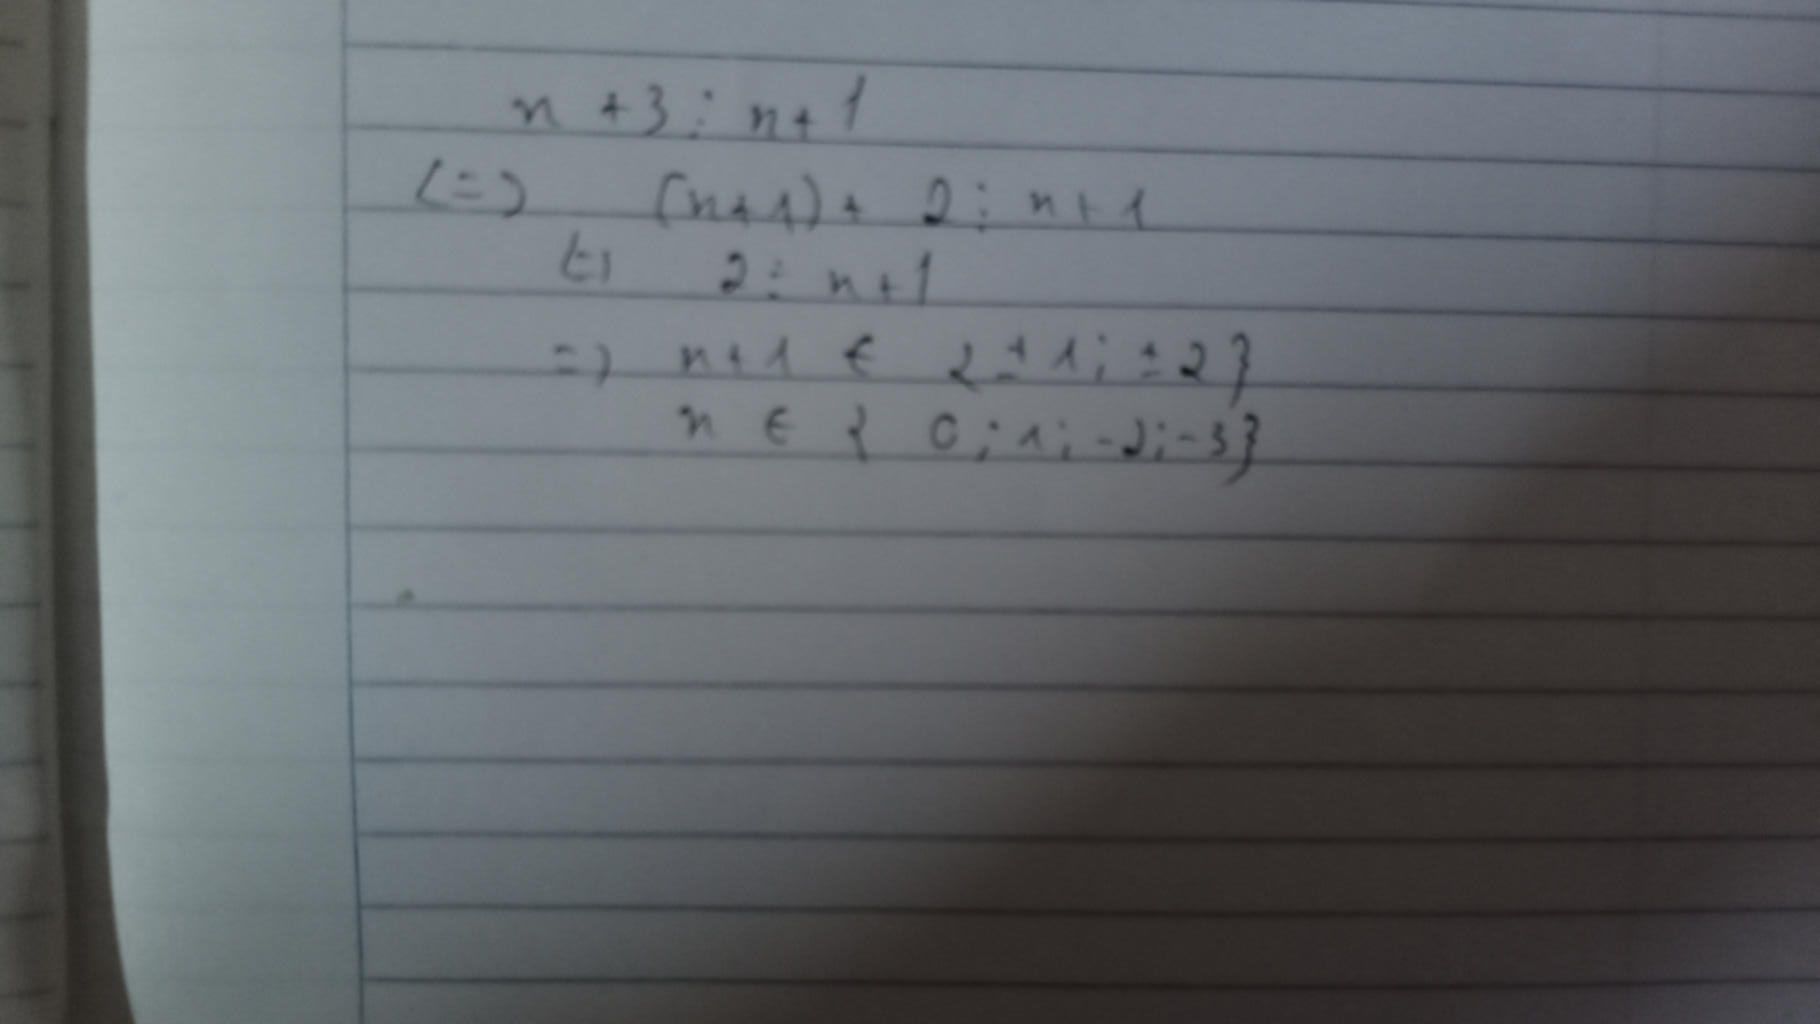 n + 3 ⋮ n + 1
(=) (n + 1) + 2 ⋮ n + 1
(=) 2 ⋮ n + 1
=) n + 1 ∈ { ± 1 ; ± 2 }
n ∈ { 0 ; 1 ; -2 ; -3 }